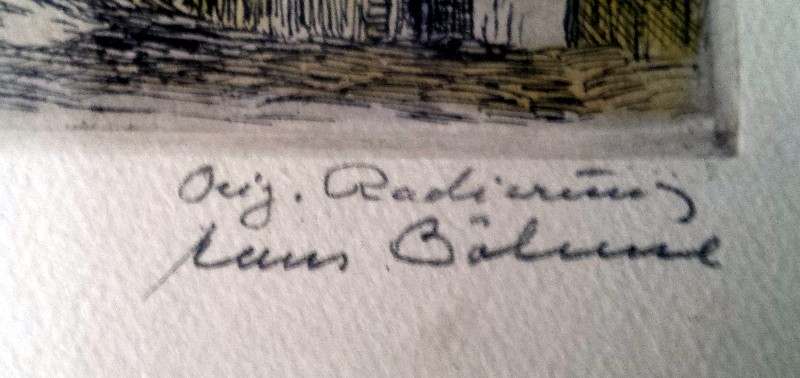 Orig. Radierung
Hans Böhme